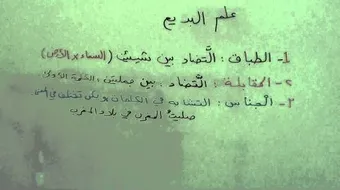 علم البديع
1- الطباق : التضاد بين شيئين (السماء x الأرض)
2- المقابلة : التضاد بين جملتين :
3- الجناس : التشابه في الكلمات ولكن تختلف في
صليت المغرب في بلاد المغرب